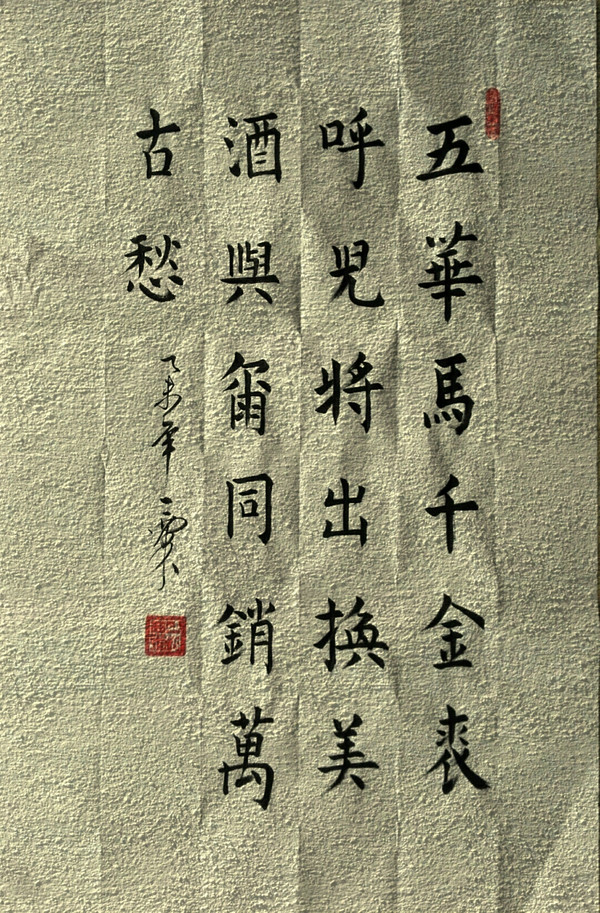 五華馬千金裘
呼児將出換美
酒與爾同銷萬
古愁
乙未年